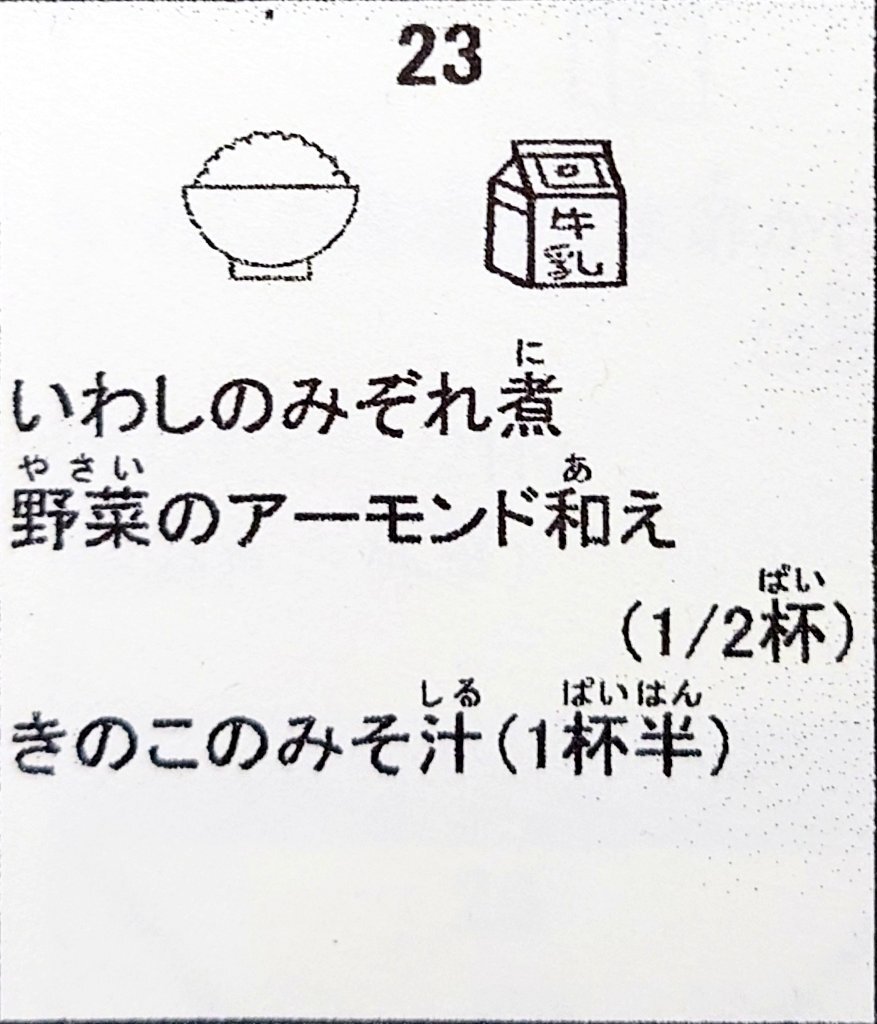 23
牛
乳
に
いわしのみぞれ煮
やさい あ
野菜のアーモンド和え
ぱい
(1/2杯)
しる ぱいはん
きのこのみそ汁(1杯半)